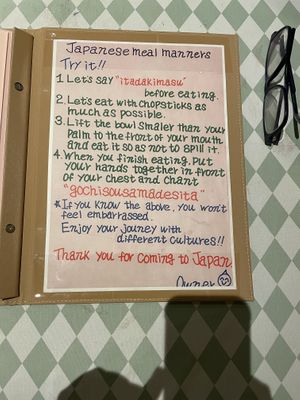 Japanese meal manners
Try it!!
1. Let's say "itadakimasu"
before eating.
2. Let's eat with chopsticks as
much as possible.
3. Lift the bowl smaler than your
palm to the front of your mouth
and eat it so as not to spill it.
4. When you finish eating, put
your hands together in front
of your chest and chant
"gochisousamadesita"
*If you know the above, you won't
feel embarrassed.
Enjoy your jouney with
different cultures!!
Thank you for coming to Japan
Owner